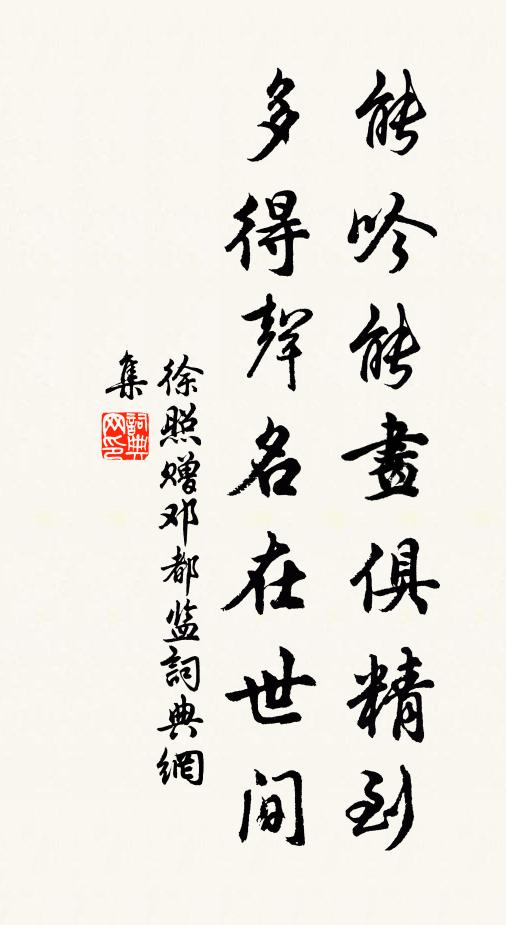 能吟能畫俱精到
多得聲名在世间
徐照赠邓都监詞典網
集
詞典網印